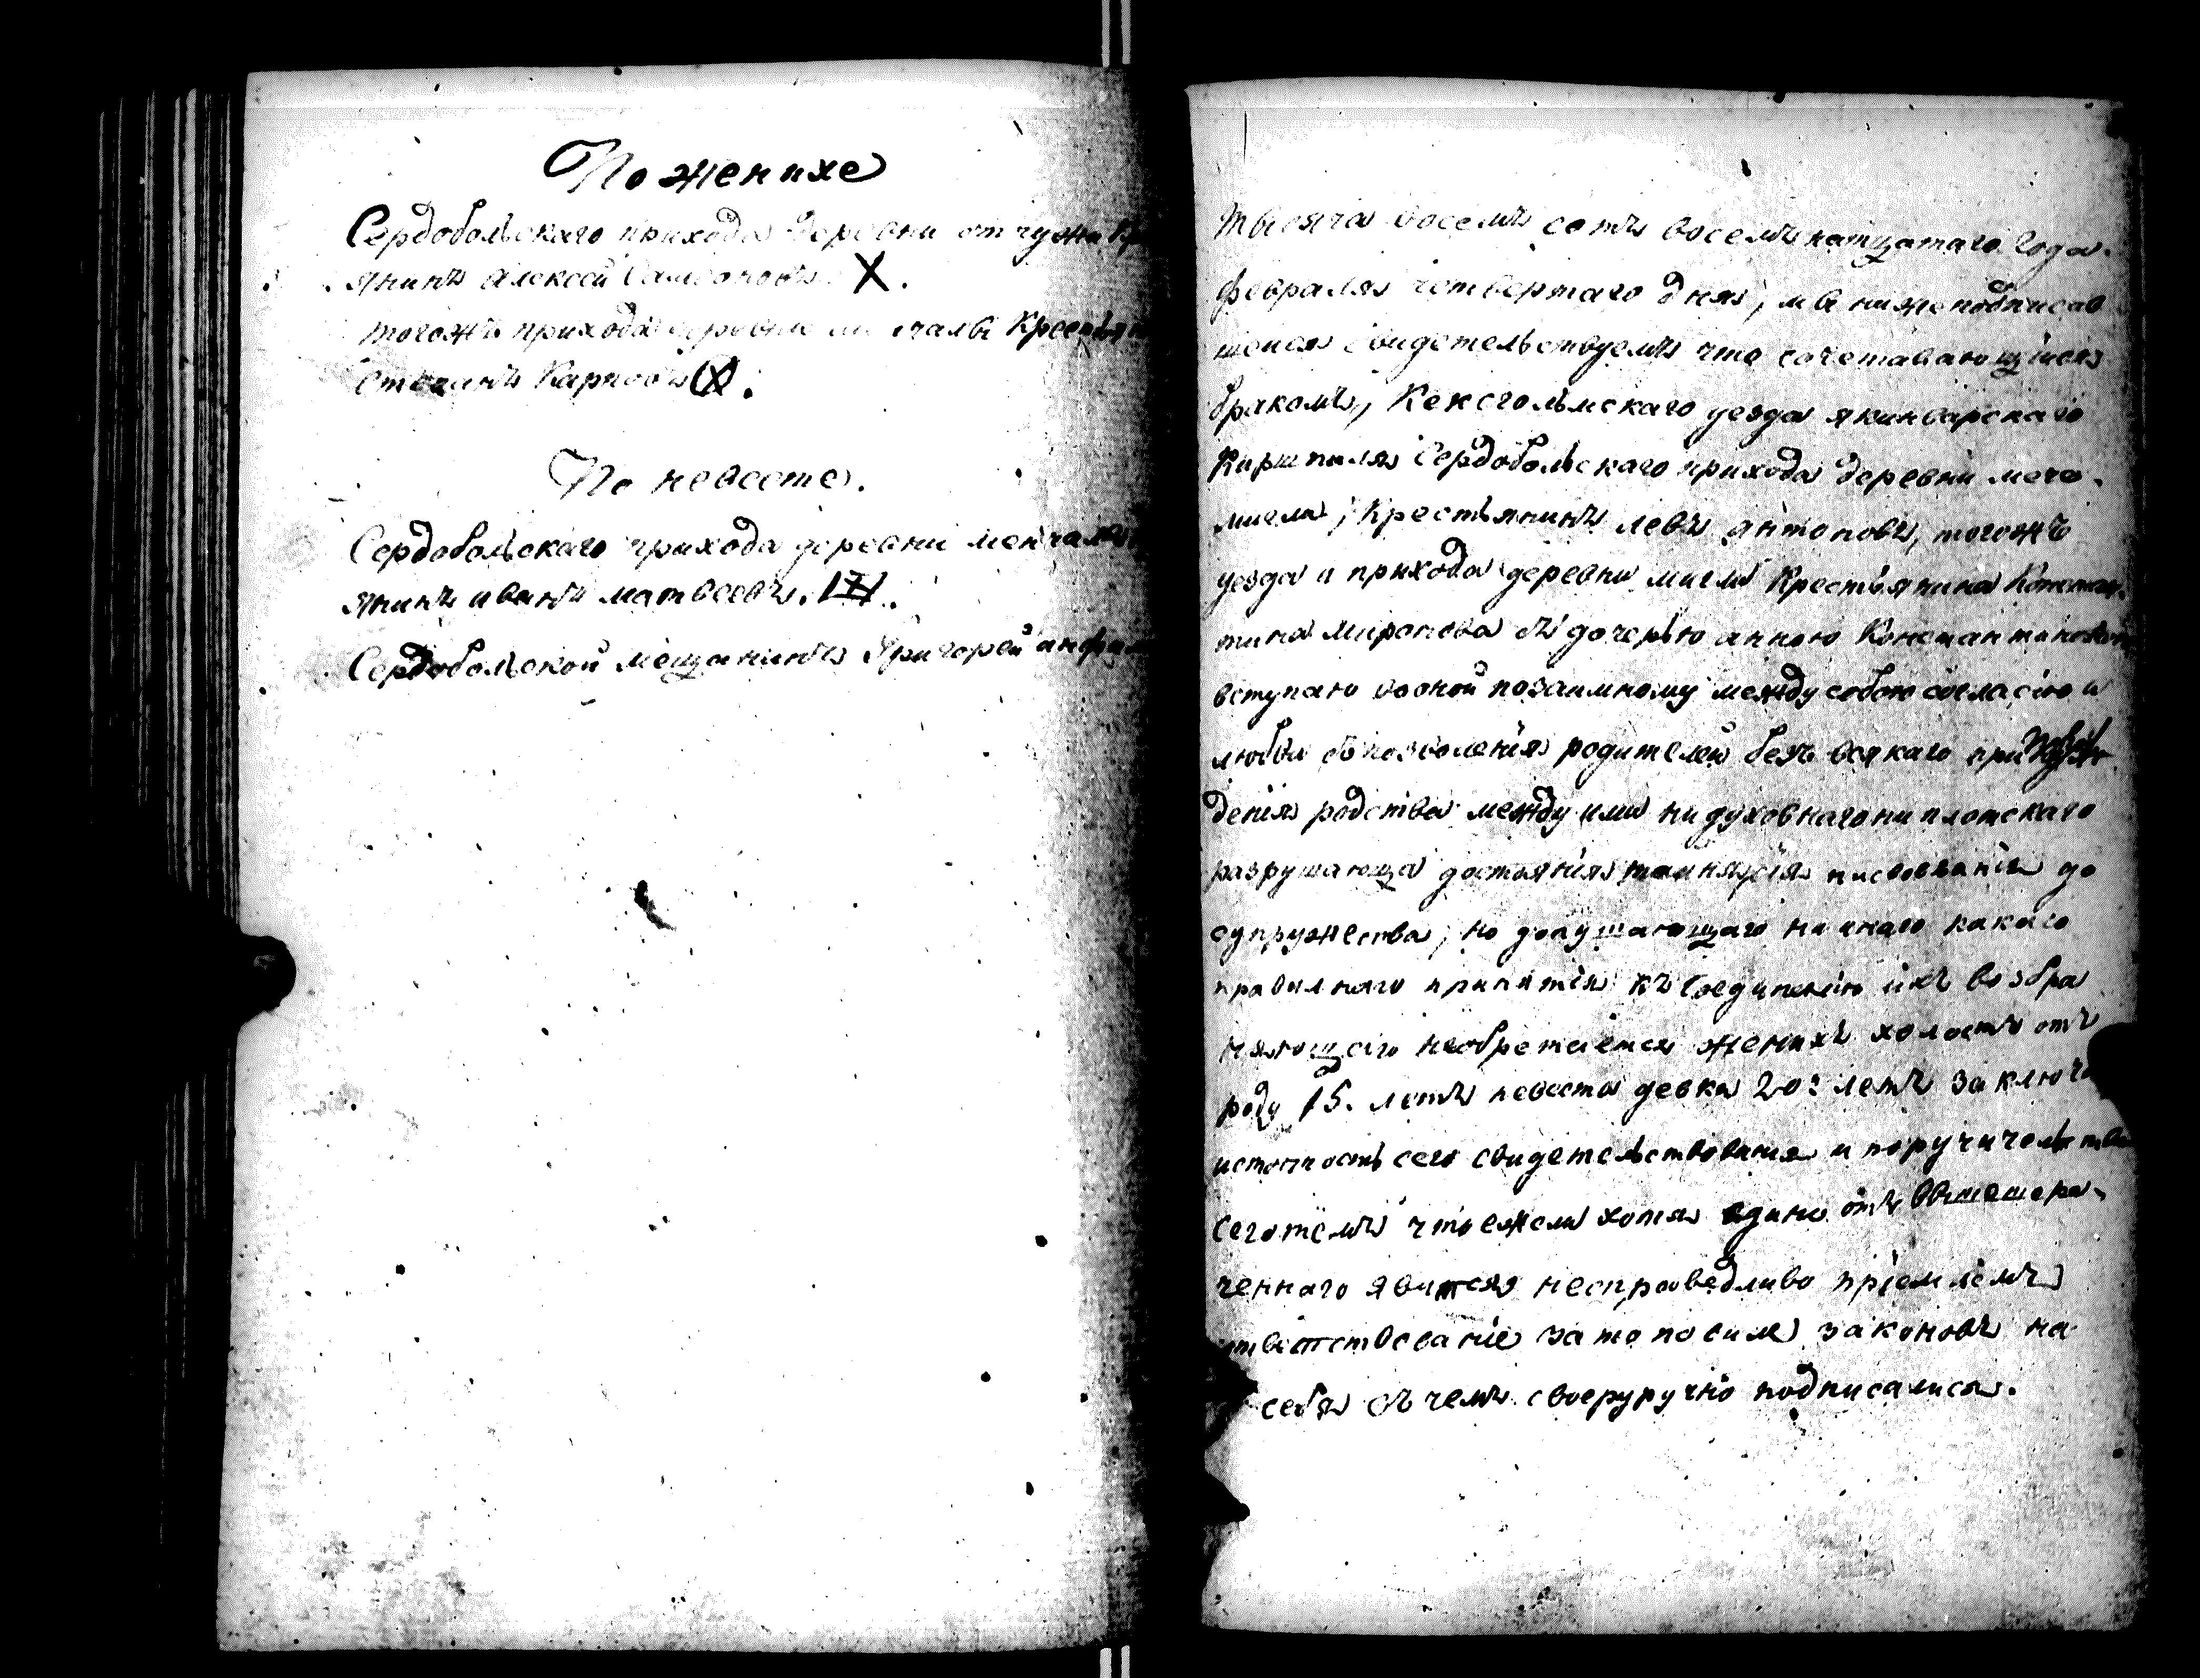 По женихе
Сердобольскаго прихода деревни
янинъ алексей Самсоновъ X.
тогожъ прихода деревни Кресть
Степанъ Карповъ X.
По невесте.
Сердобольскаго прихода деревни
янинъ иванъ матвеевъ.
Сердобольской мещанинъ Григорей
тысяча восемъ сотъ восемънатцатаго года.
февраля четвертаго дня, мы нижеподписав
шеися свидетельствуемъ что сочетавающиися
бракомъ, Кексгольмскаго уезда якимварскаго
Киршпиля Сердобольскаго прихода деревни
Крестьянинъ левъ антоновъ, тогожъ
уезда и прихода деревни Крестьянина Констан
тина миронова съ дочерью анною Константиновою
вступаю во оной повзаимному между собою согласию и
любви съ позволения родителей безъ всякаго принуж
дения родства между ими ни духовнаго ни плотскаго
разрушающа достояния до
супружества, но допушающаго ни инаго какаго
правилнаго припятия къ соединению ихъ возбра
няющаго необретается женихъ холостъ отъ
роду 15. летъ невеста девка 20: летъ заключа
истость сего свидетельствования и поручителства
сего темъ что ежели хотя едино отъ вышешере
ченнаго явится несправедливо приемлемъ
ответствование за то по силе законовъ на
себя въ чемъ своеруручно подписалися.